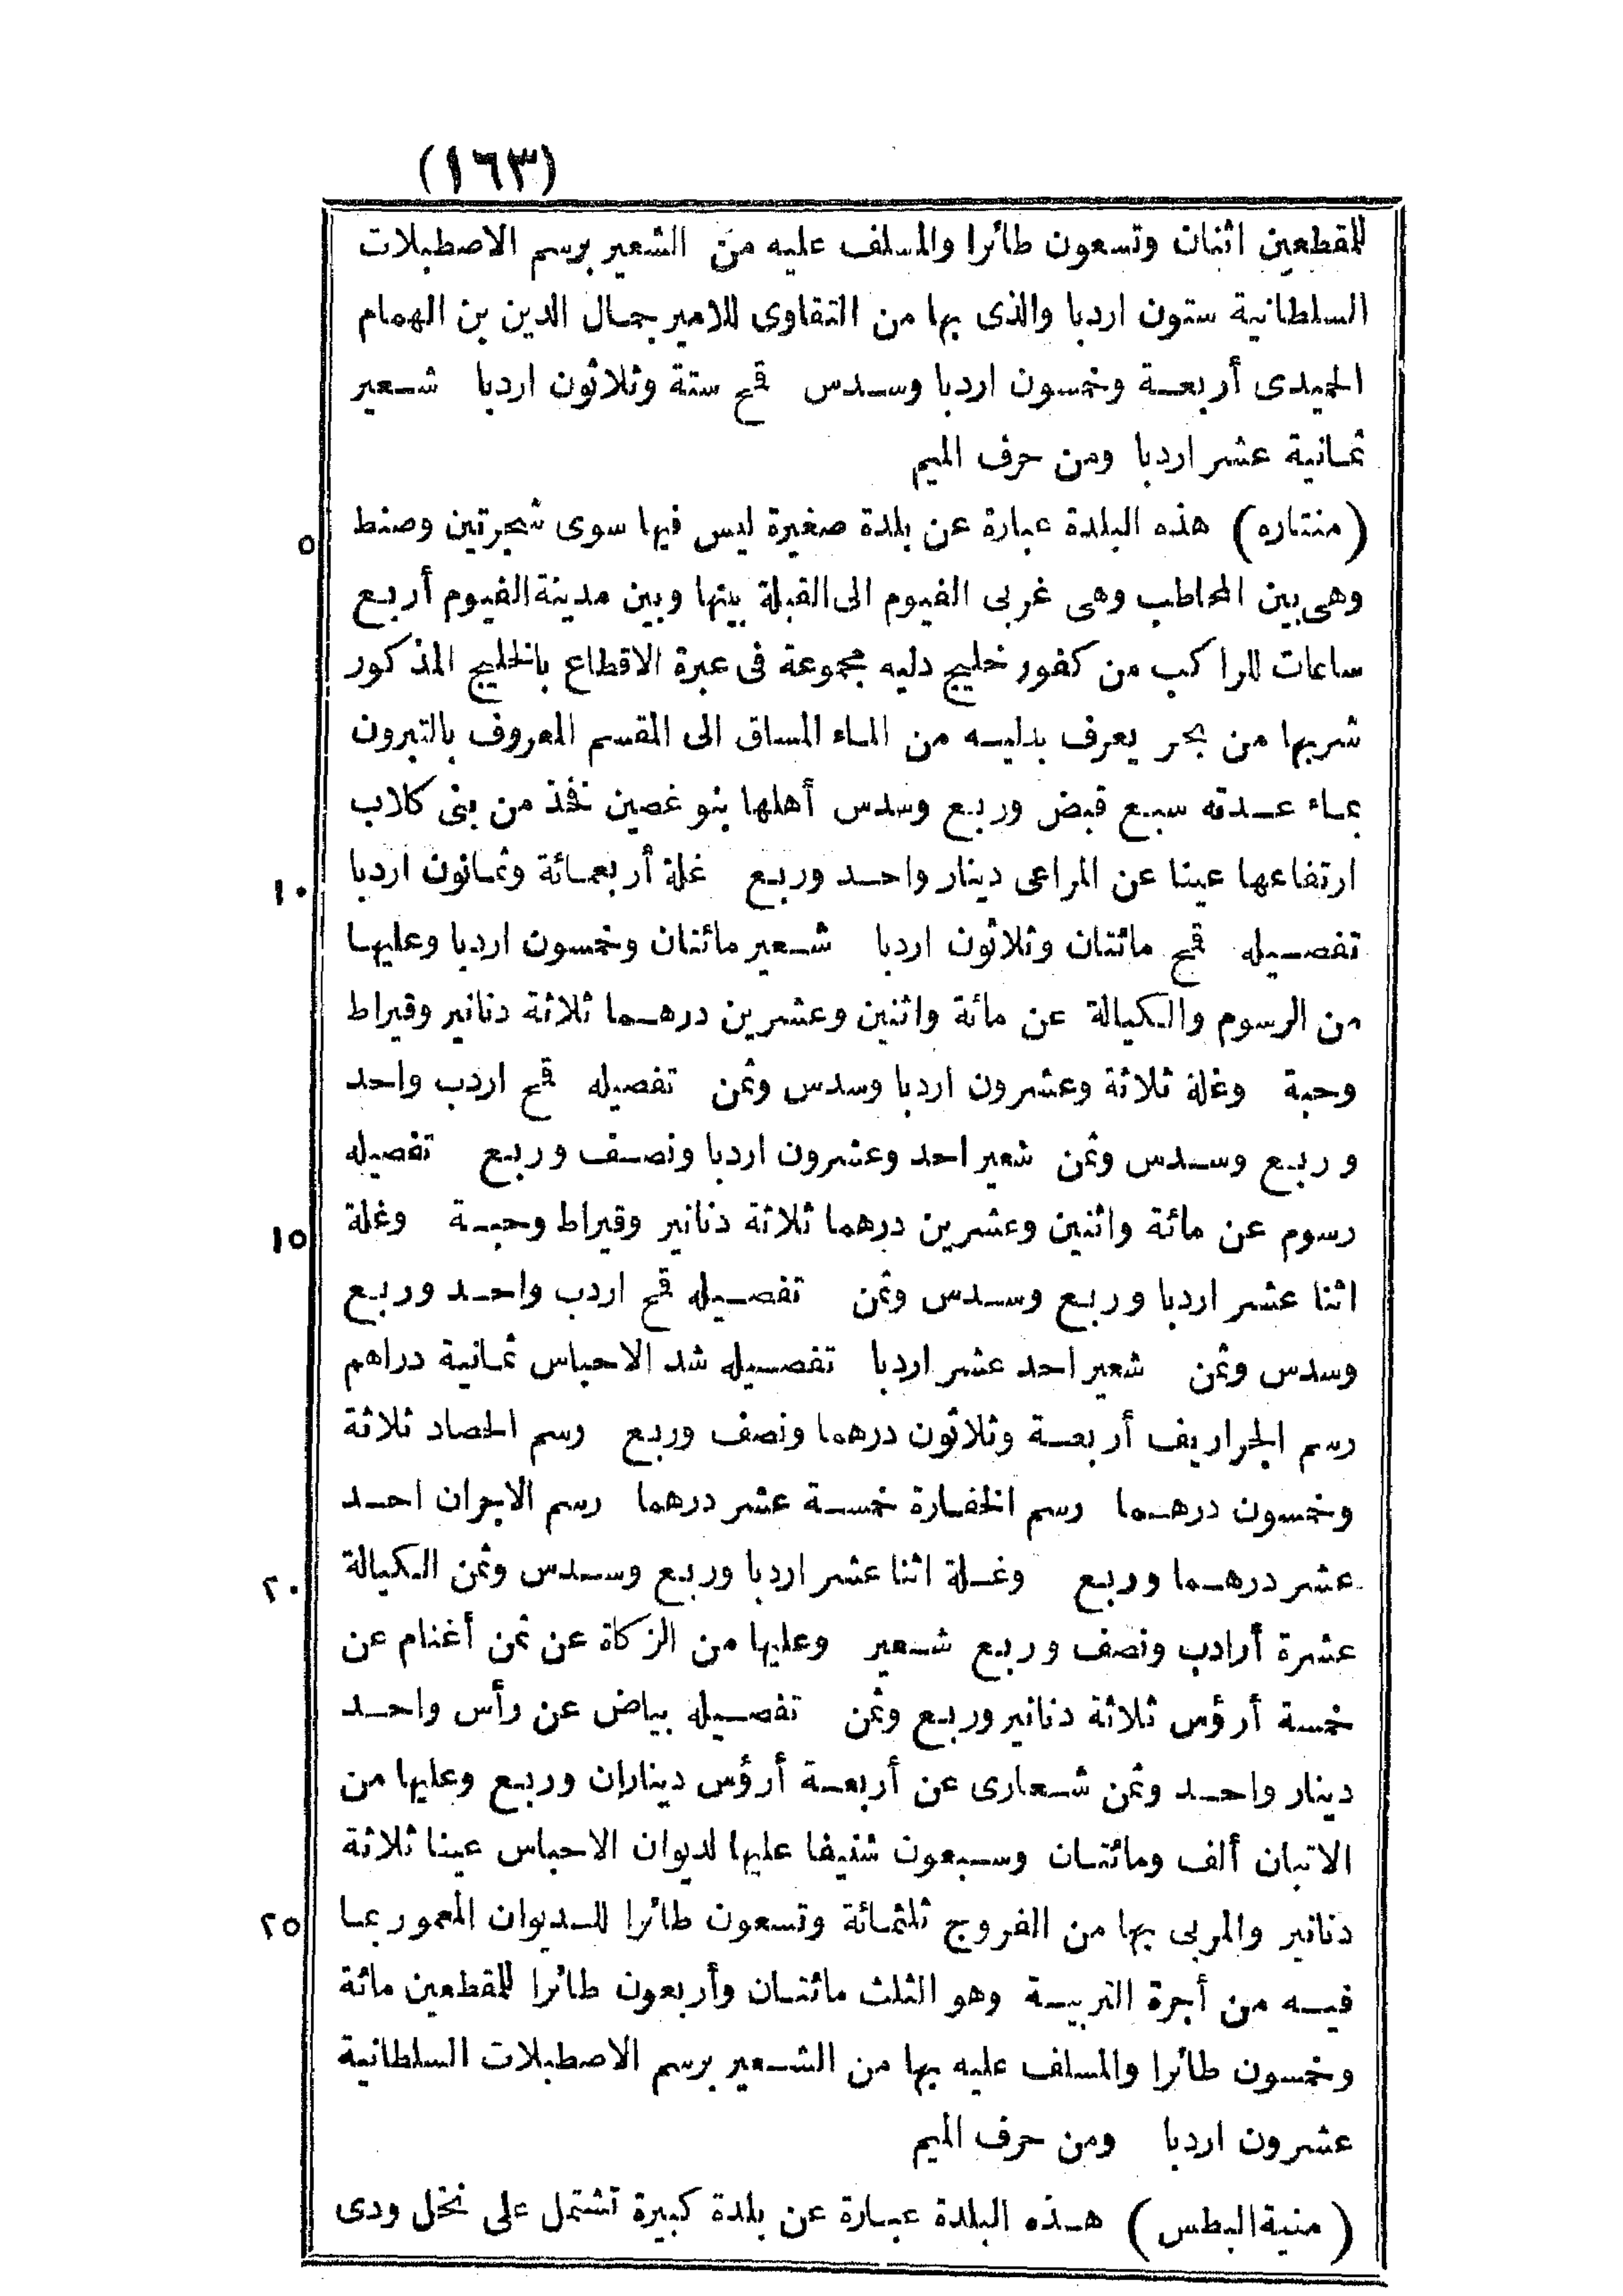 (١٦٣)
للمقطعين اثنان وتسعون طائرا والمسلف عليه من الشعير برسم الاصطبلات
السلطانية ستون اردبا والذى بها من التقاوى للامير جمال الدين بن الهمام
الحميدى أربعة وخمسون اردبا وسدس قمح ستة وثلاثون اردبا شعير
ثمانية عشر اردبا ومن حرف الميم
(منتاره) هذه البلدة عبارة عن بلدة صغيرة ليس فيها سوى شجرتين وصنط
٥
وهى بين المحاطب وهى غربى الفيوم الى القبلة بينها وبين مدينة الفيوم أربع
ساعات للراكب من كفور خليج دليه مجموعة فى عبرة الاقطاع بالخليج المذكور
شربها من بحر يعرف بدليسه من الماء المساق الى المقسم المعروف بالتبرون
بماء عدته سبع قبض وربع وسدس أهلها بنو غصين فخذ من بنى كلاب
ارتفاعها عينا عن المراعى دينار واحد وربع غلة أربعمائة وثمانون اردبا
١٠
تفصيله قمح مائتان وثلاثون اردبا شعير مائتان وخمسون اردبا وعليها
من الرسوم والكيالة عن مائة واثنين وعشرين درهما ثلاثة دنانير وقيراط
وحبة وغلة ثلاثة وعشرون اردبا وسدس وثمن تفصيله قمح اردب واحد
وربع وسدس وثمن شعير احد وعشرون اردبا ونصف وربع تفصيله
رسوم عن مائة واثنين وعشرين درهما ثلاثة دنانير وقيراط وحبة وغلة
١٥
اثنا عشر اردبا وربع وسدس وثمن تفصيله قمح اردب واحد وربع
وسدس وثمن شعير احد عشر اردبا تفصيله شد الاحباس ثمانية دراهم
رسم الجراريف أربعة وثلاثون درهما ونصف وربع رسم الحصاد ثلاثة
وخمسون درهما رسم الخفارة خمسة عشر درهما رسم الاجران احد
عشر درهما وربع وغلة اثنا عشر اردبا وربع وسدس وثمن الكيالة
٢٠
عشرة أرادب ونصف وربع شعير وعليها من الزكاة عن ثمن أغنام عن
خمسة أرؤس ثلاثة دنانير وربع وثمن تفصيله بياض عن رأس واحد
دينار واحد وثمن شعارى عن أربعة أرؤس ديناران وربع وعليها من
الاتبان ألف ومائتان وسبعون شنيفا عليها لديوان الاحباس عينا ثلاثة
دنانير والمربى بها من الفروج ثلثمائة وتسعون طائرا للديوان المعمور بما
٢٥
فيه من أجرة التربية وهو الثلث مائتان وأربعون طائرا للمقطعين مائة
وخمسون طائرا والمسلف عليه بها من الشعير برسم الاصطبلات السلطانية
عشرون اردبا ومن حرف الميم
(منية البطس) هذه البلدة عبارة عن بلدة كبيرة تشتمل على نخل ودى